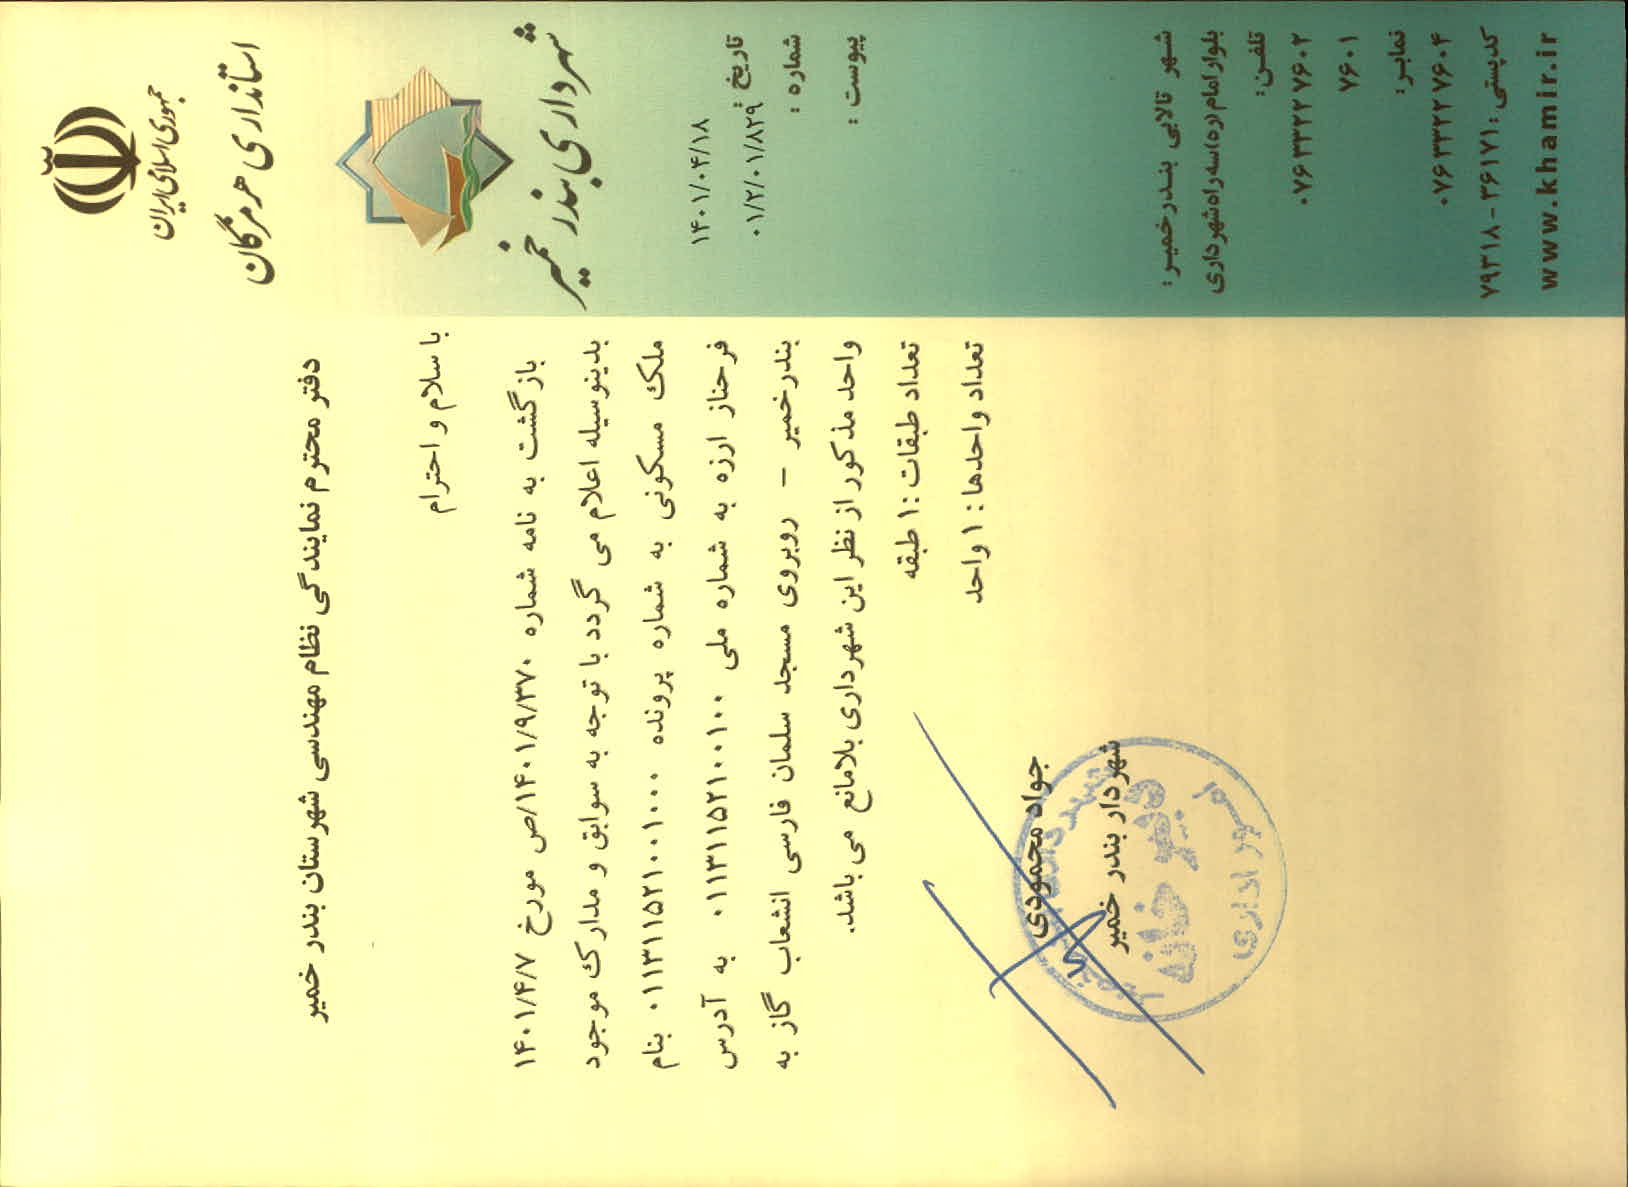 جمهوری اسلامی ایران
استانداری هرمزگان
شهرداری بندر خمیر
۱۴۰۱/۰۴/۱۸
تاریخ :
۰۱/۲/۰۱/۸۲۹
شماره :
پیوست :
دفتر محترم نمایندگی نظام مهندسی شهرستان بندر خمیر
با سلام و احترام
بازگشت به نامه شماره ۱۴۰۱/۹/۳۷۰/ص مورخ ۱۴۰۱/۴/۷
بدینوسیله اعلام می گردد با توجه به سوابق و مدارک موجود
ملک مسکونی به شماره پرونده ۰۱۱۳۱۱۵۲۱۰۰۱۰۰۰ بنام
فرحناز ارزه به شماره ملی ۰۱۱۳۱۱۵۲۱۰۰۱۰۰ به آدرس
بندرخمیر - روبروی مسجد سلمان فارسی انشعاب گاز به
واحد مذکور از نظر این شهرداری بلامانع می باشد.
تعداد طبقات :۱ طبقه
تعداد واحدها : ۱ واحد
جواد محمودی
شهردار بندر خمیر
دبیرخانه
مهر اداری
شهر تالابی بندرخمیر:
بلوار امام(ره)سه راه شهرداری
تلفن:
۰۷۶۳۳۲۲۷۶۰۲
۷۶۰۱
نمابر:
۰۷۶۳۳۲۲۷۶۰۴
کدپستی: ۳۶۱۷۱-۷۹۳۱۸
www.khamir.ir